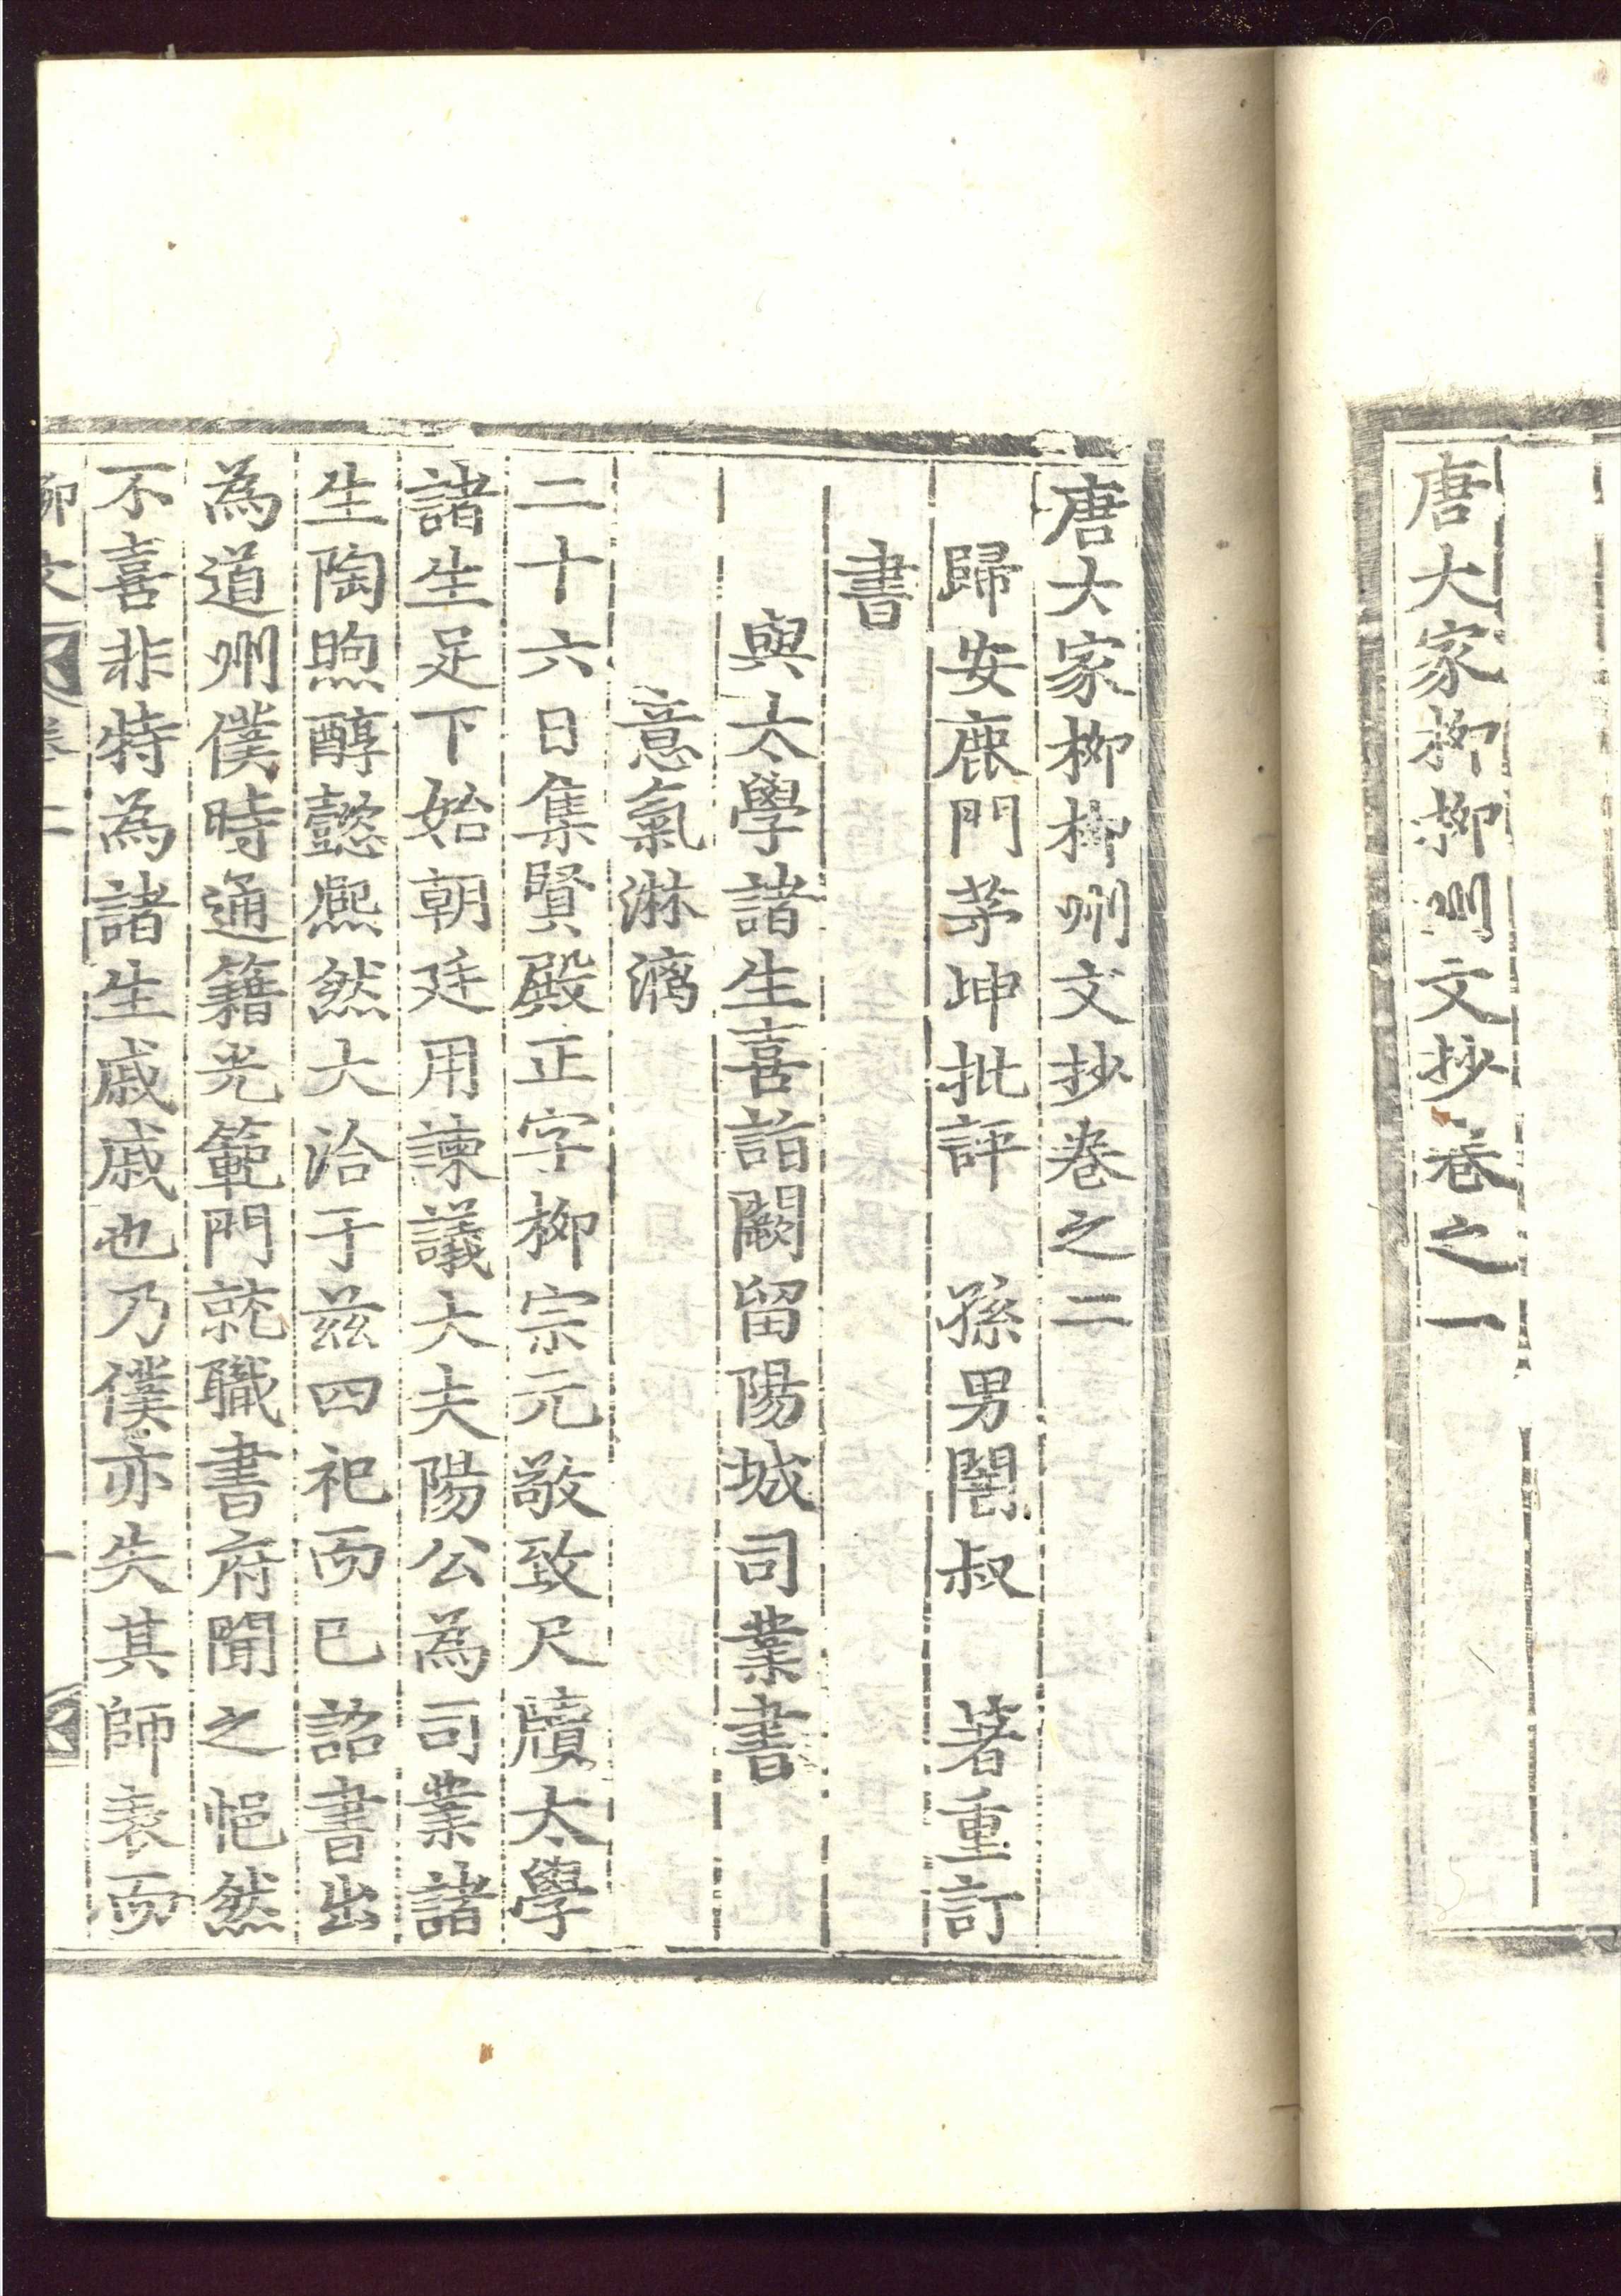 唐大家柳柳州文抄卷之一
唐大家柳柳州文抄卷之二
歸安鹿門茅坤批評　孫男闇叔　著重訂
書
與太學諸生喜詣闕留陽城司業書
意氣淋漓
二十六日集賢殿正字柳宗元敬致尺牘太學
諸生足下始朝廷用諫議大夫陽公為司業諸
生陶煦醇懿熙然大洽于茲四祀而已詔書出
為道州僕時通籍光範門就職書府聞之悒然
不喜非特為諸生戚戚也乃僕亦失其師表而
柳文　卷二　一